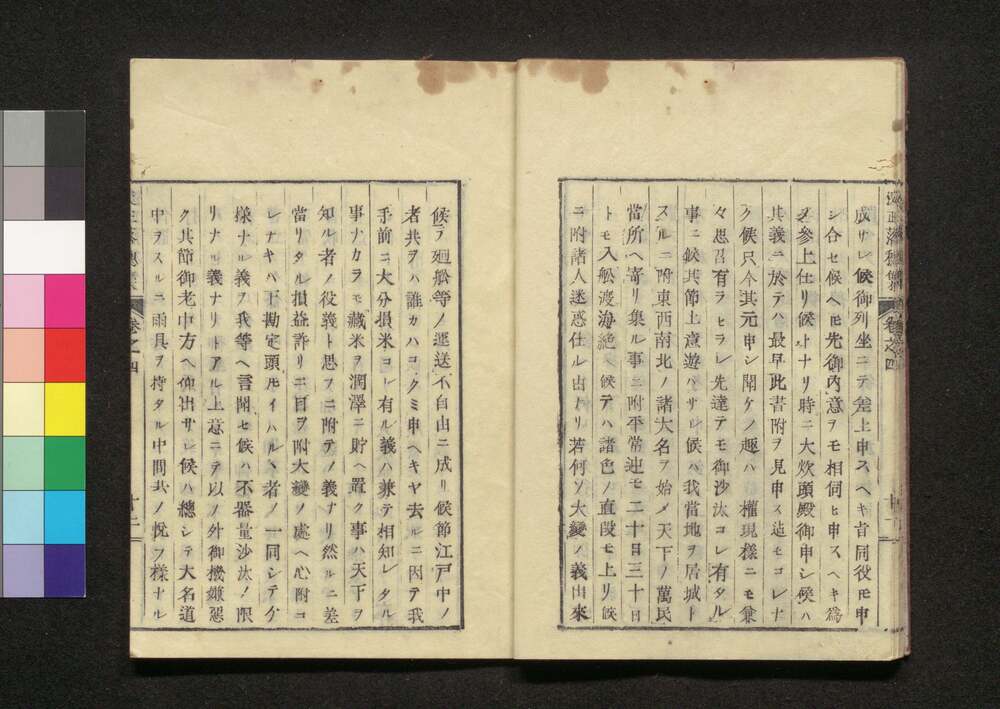 成サレ候御列坐ニテ差上申スヘキ旨同役モ申
シ合セ候ヘ𪜈先御内意ヲモ相伺ヒ申スヘキ為
メ参上仕リ候トナリ時ニ大炊頭殿御申シ候ハ
其義ニ於テハ最早此書附ヲ見申ス迠モコレナ
ク候只今其元申シ聞ケノ趣ハ 權現樣ニモ兼
々思召有ラセラレ先達テモ御沙汰コレ有タル
事ニ候其節上意遊ハサレ候ハ我當地ヲ居城ト
スルニ附東西南北ノ諸大名ヲ始メ天下ノ萬民
當所ヘ寄リ集ル事ニ附平常迚モ二十日三十日
トモ入舩渡海絶ヘ候テハ諸色ノ直段モ上リ候
ニ附諸人迷惑仕ル由ナリ若何ソ大變ノ義出來
卷之四
候ヲ廻舩等ノ運送不自由ニ成リ候節江戸中ノ
者共ヲハ誰カハコクミ申ヘキヤ去ルニ因テ我
手前ニ大分損米コレ有ル義ハ兼テ相知レタル
事ナカラモ藏米ヲ潤澤ニ貯ヘ置ク事ハ天下ヲ
知ル者ノ役義ト思フニ附テノ義ナリ然ルニ差
當リタル損益許リニ目ヲ附大變ノ處ヘ心附コ
レナキハ下勘定頭𪜈イハルヽ者ノ一同シテケ
樣ナル義ヲ我等ヘ言聞セ候ハ不器量沙汰ノ限
リナル義ナリトアル上意ニテ以ノ外御機嫌惡
ク其節御老中方ヘ仰出サレ候ハ總シテ大名道
中ヲスルニ雨具ヲ持タル中間共ノ悅フ樣ナル
卷之四
十二